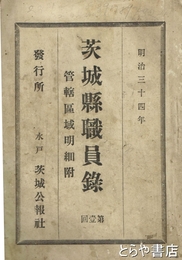 明治三十四年
茨城縣職員錄
管轄區域明細附
第壹回
發行所
水戸 茨城公報社
とらや書店